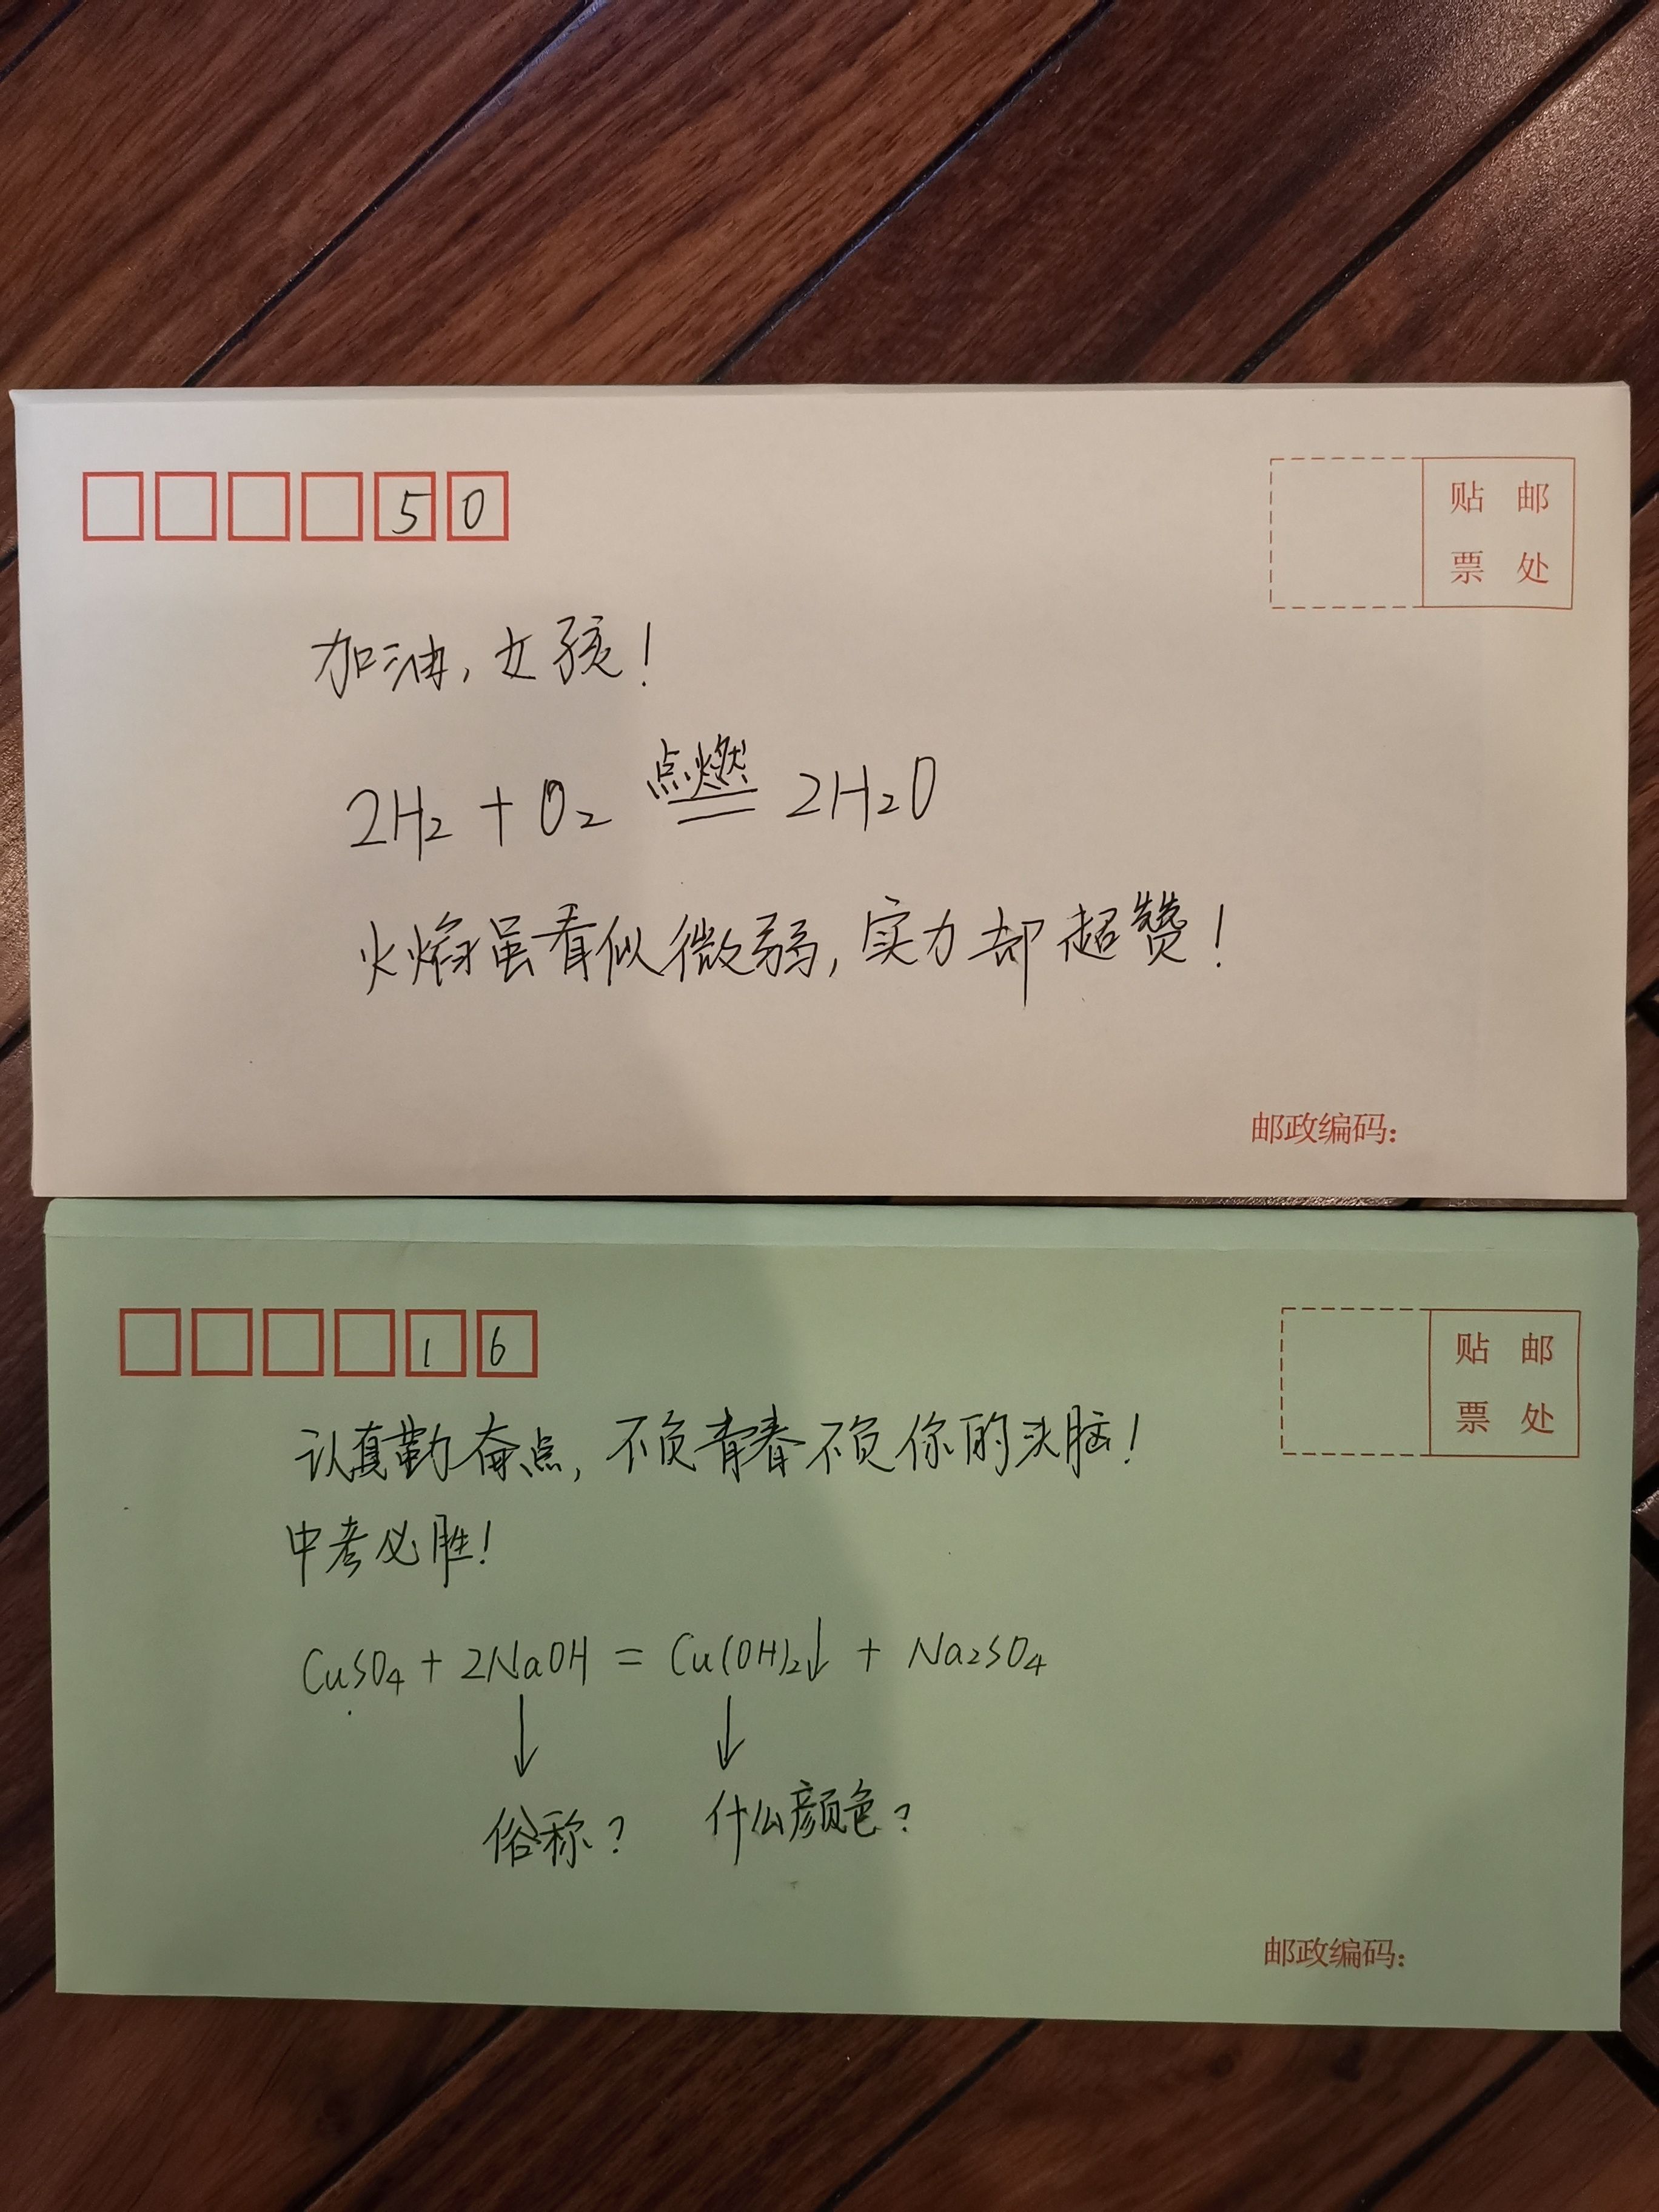 50
贴 邮
票 处
加油，女孩！
点燃
2H₂ + O₂ == 2H₂O
火焰虽看似微弱，实力却超赞！
邮政编码：
16
贴 邮
票 处
认真勤奋点，不负青春不负你的头脑！
中考必胜！
CuSO₄ + 2NaOH = Cu(OH)₂↓ + Na₂SO₄
↓ ↓
俗称？ 什么颜色？
邮政编码：